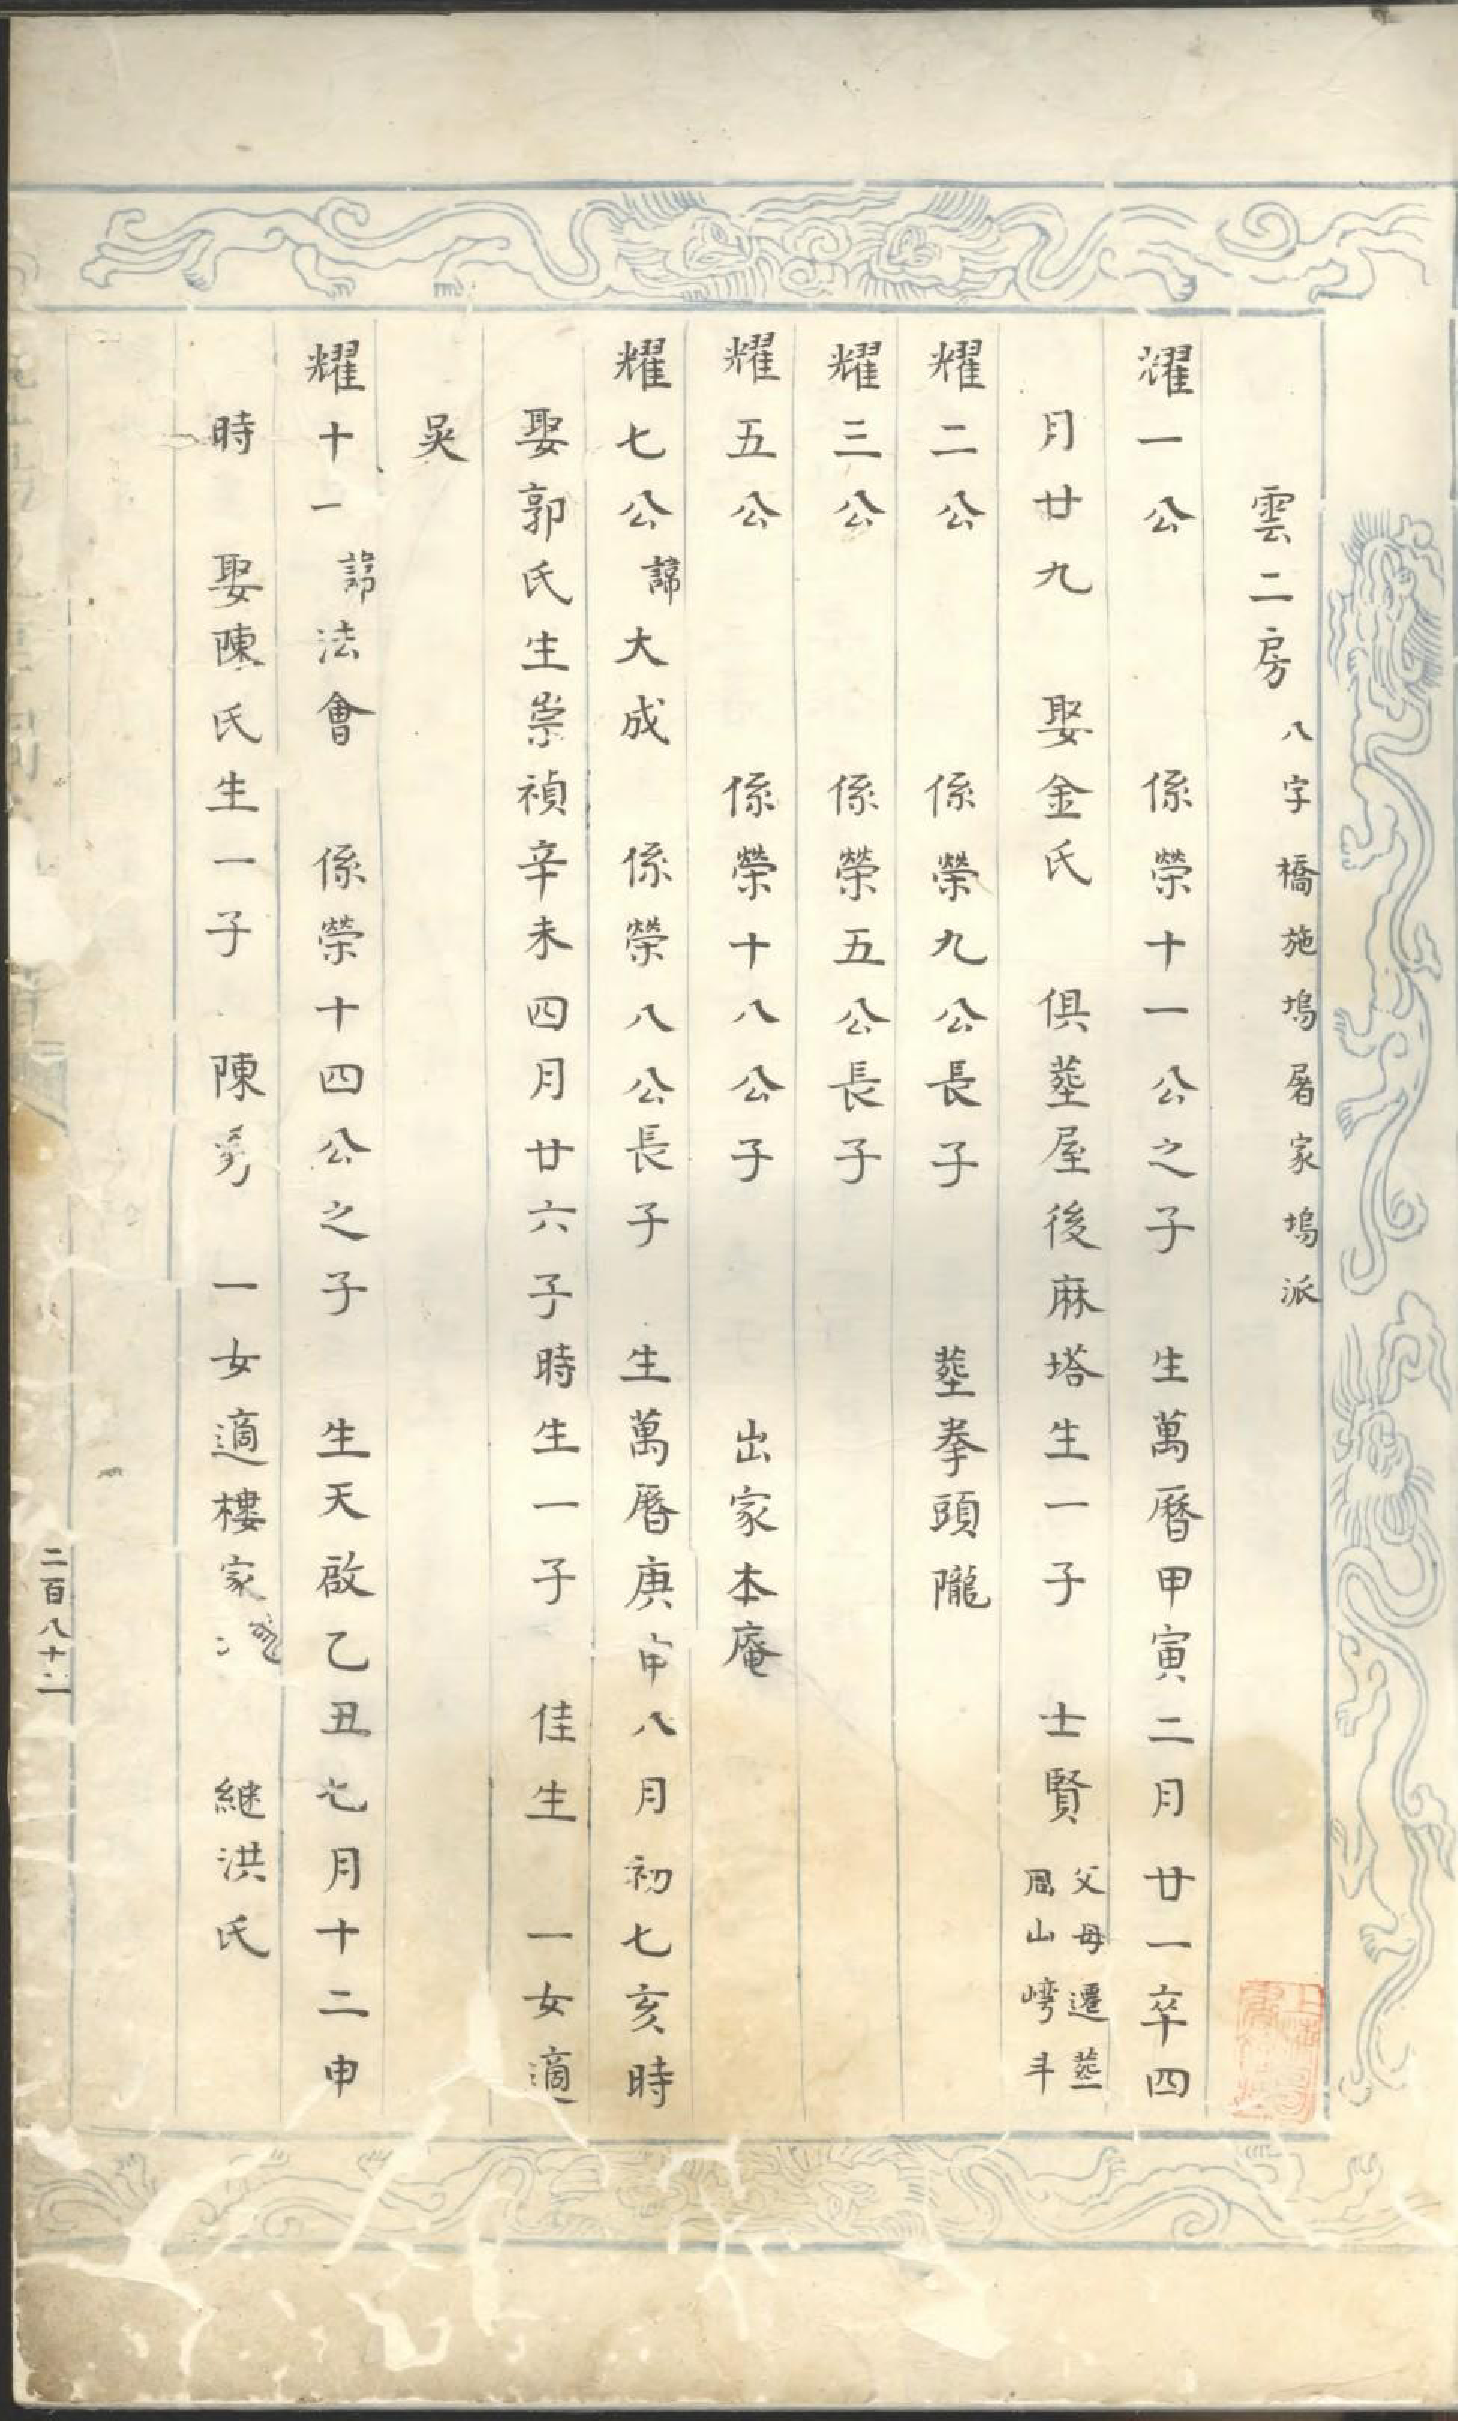 雲二房 八字橋施塢屠家塢派
耀一公 係榮十一公之子 生萬曆甲寅二月廿一卒四
月廿九 娶金氏 俱塟屋後麻塔生一子 士賢 父母遷塟
周山崂斗
耀二公 係榮九公長子 塟拳頭隴
耀三公 係榮五公長子
耀五公 係榮十八公子 出家本庵
耀七公 諱大成 係榮八公長子 生萬曆庚申八月初七亥時
娶郭氏生崇禎辛未四月廿六子時生一子 佳生 一女適
吳
耀十一 諱法會 係榮十四公之子 生天啟乙丑七月十二申
時 娶陳氏生一子 陳 一女適樓家 継洪氏
二百八十二